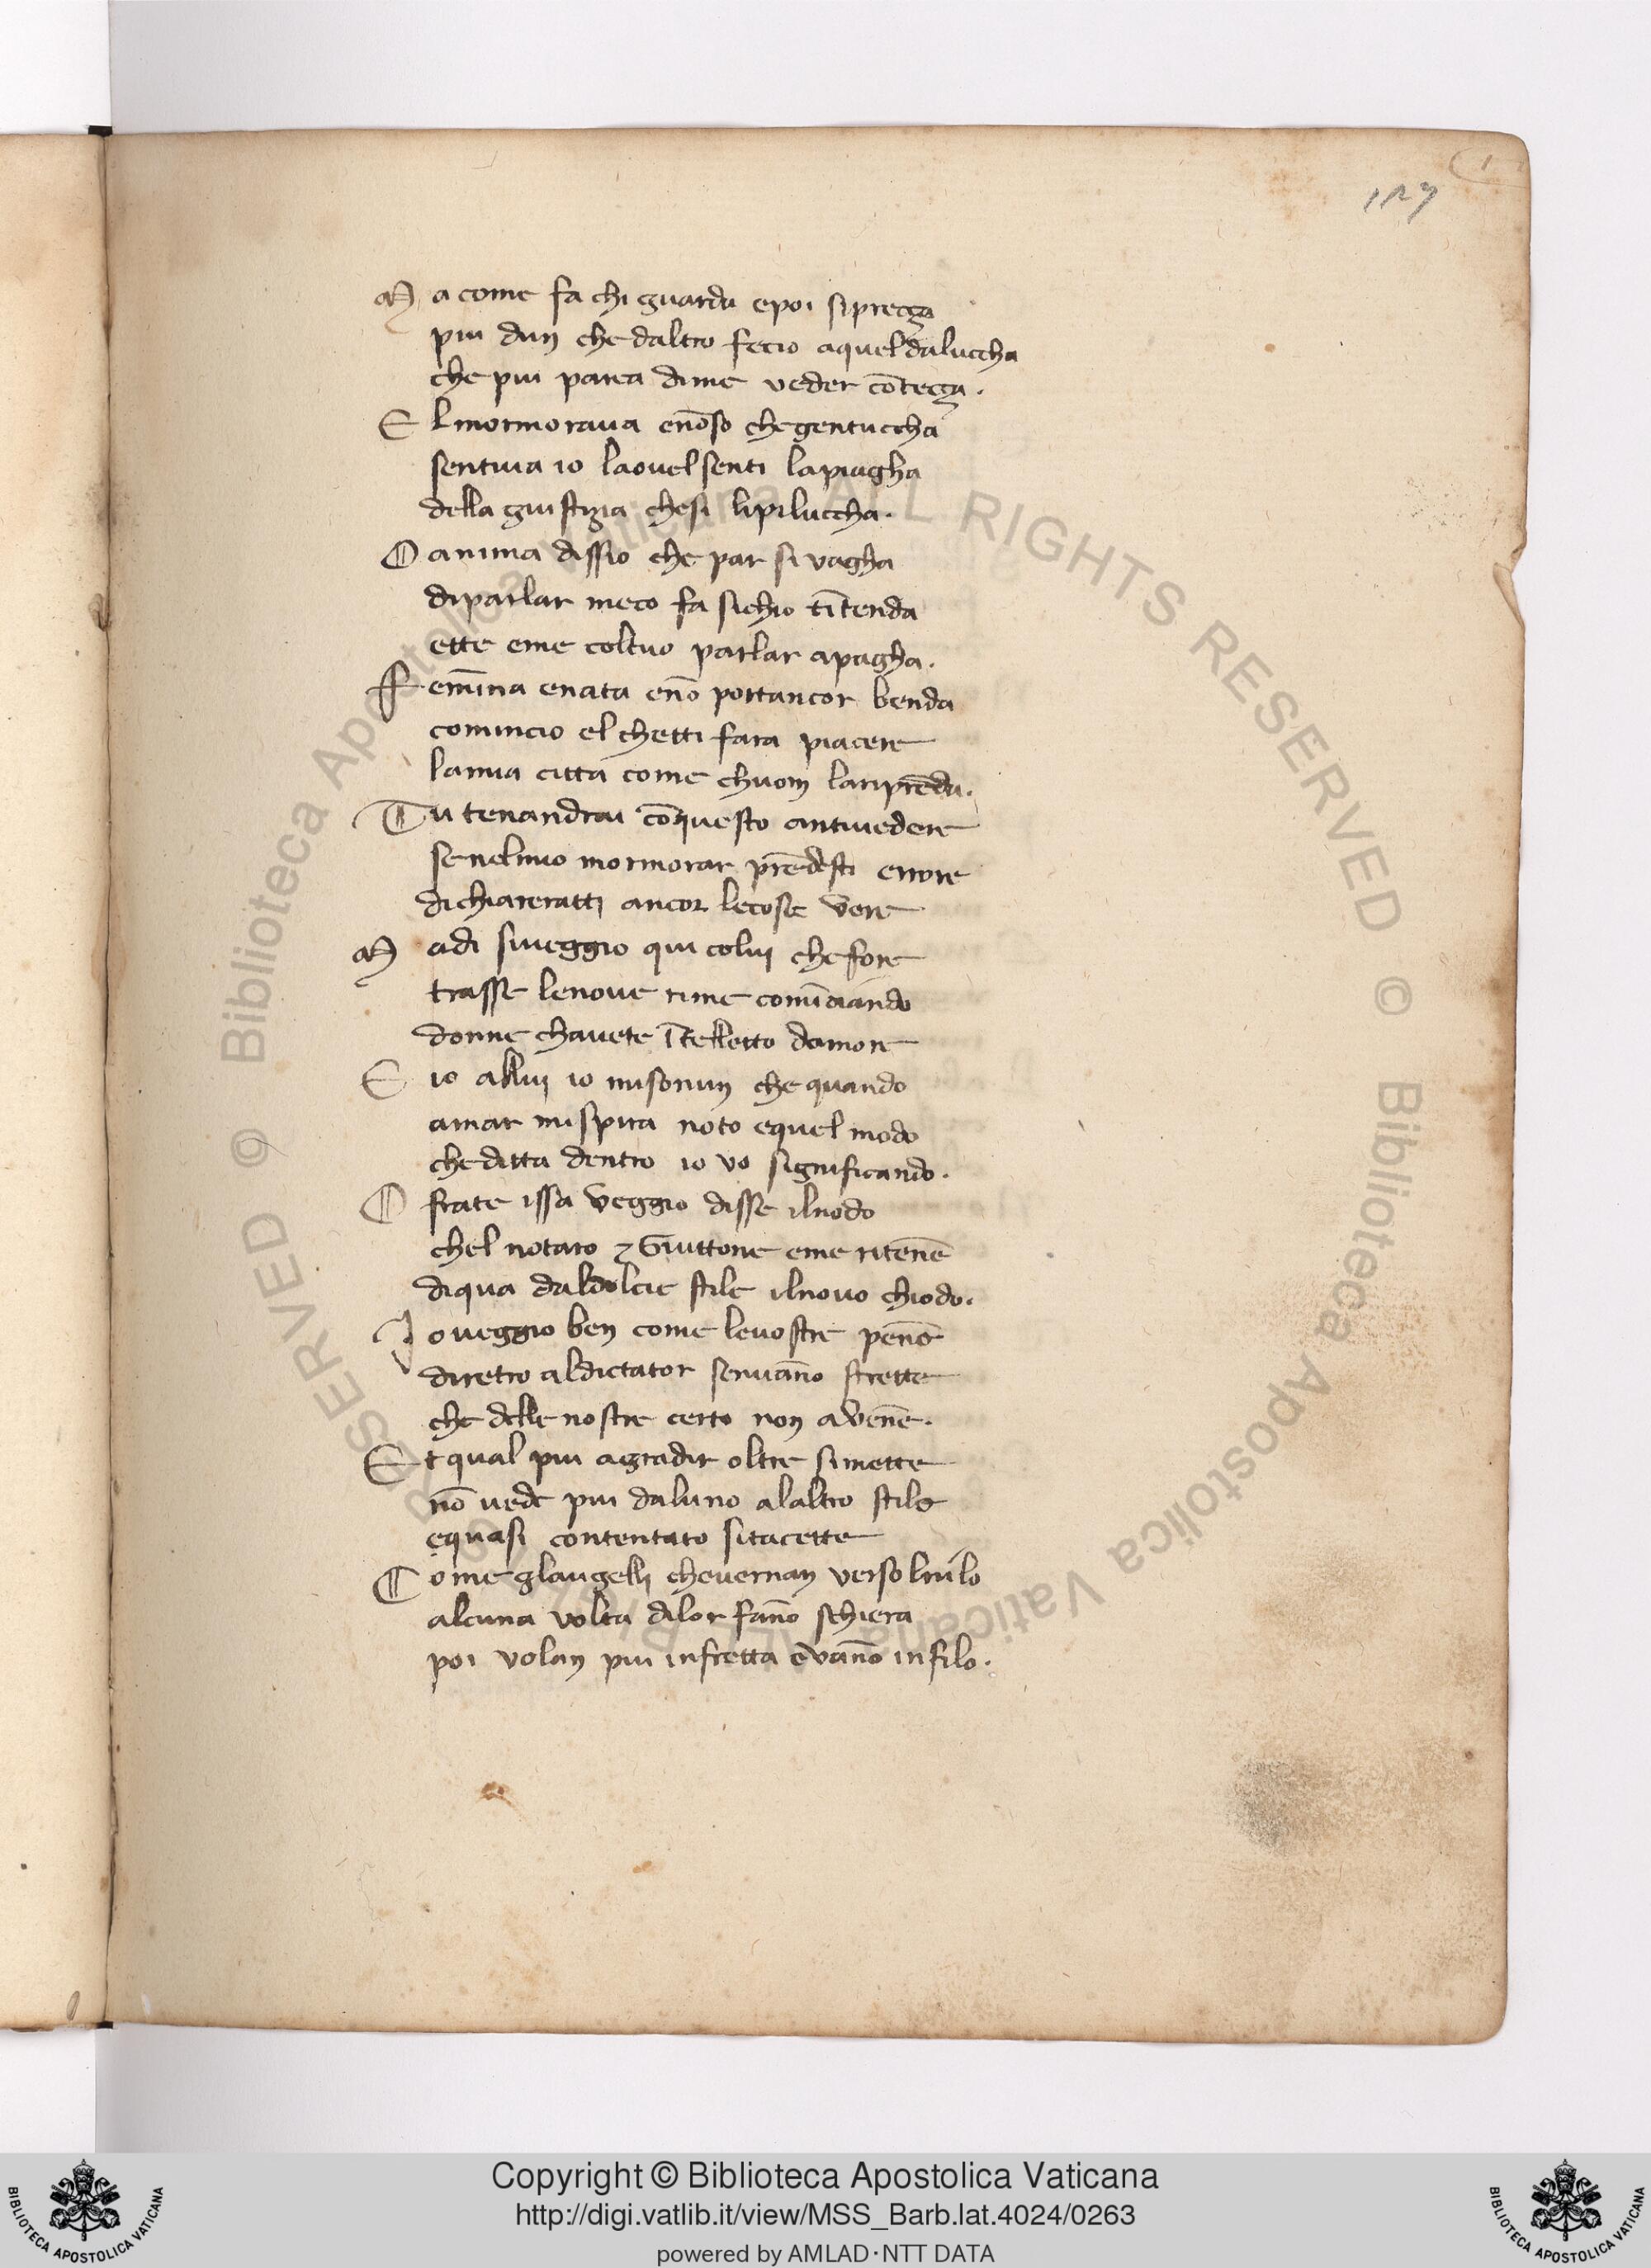 127
M a come fa chi guarda epoi sipreçça
piu dun che daltro fecio aquel daluccha
che piu parea dime veder cōteçça.
E l mormoraua enōso chegentuccha
sentiua io laouel senti lapiagha
della giustizia chesi lipiluccha.
O anima dissio che par si vagha
diparlar meco fa sichio tītenda
ette eme coltuo parlar apagha.
F emīna enata enō portancor benda
comincio el chetti fara piacere
lamia citta come chuom lariprēda.
T u tenandrai cōquesto antiuedere
senelmio mormorar prēdesti errore
dichiareratti ancor lecose vere
M adi siueggio qui colui chefore
trasse lenoue rime comīciando
donne chauete ītelletto damore
E io allui io misonun che quando
amar mispira noto equel modo
cheditta dentro io vo significando.
O frate issa veggio disse ilnodo
chel notaro ⁊ Guittone eme ritēnē
diqua daldolcie stile ilnouo chiodo.
I oueggio ben come leuostre pēne
diretro aldictator seruāno strette
che delle nostre certo non avēne.
E t qual piu agradir oltre simette
nō uede piu daluno alaltro stile
equasi contentato sitacette
C ome glaugelli cheuernan verso lnilo
alcuna volta dilor fāno schiera
poi volan piu infretta evāno infilo.
© Biblioteca Apostolica Vaticana ALL RIGHTS RESERVED © Biblioteca Apostolica Vaticana ALL RIGHTS RESERVED
Copyright © Biblioteca Apostolica Vaticana
http://digi.vatlib.it/view/MSS_Barb.lat.4024/0263
powered by AMLAD·NTT DATA
BIBLIOTECA APOSTOLICA VATICANA
BIBLIOTECA APOSTOLICA VATICANA